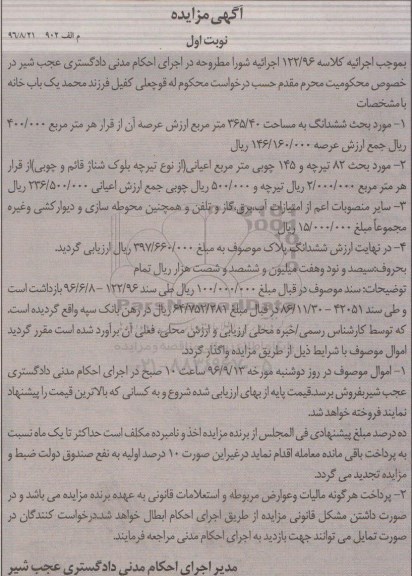 آگهی مزایده
نوبت اول
م الف ۹۰۲ ۹۶/۸/۲۱
بموجب اجرائیه کلاسه ۱۲۲/۹۶ اجرائیه شورا مطروحه در اجرای احکام مدنی دادگستری عجب شیر در
خصوص محکومیت محرم مقدم حسب درخواست محکوم له قوجعلی کفیل فرزند محمد یک باب خانه
با مشخصات
۱- مورد بحث ششدانگ به مساحت ۳۶۵/۴۰ متر مربع ارزش عرصه آن از قرار هر متر مربع ۴۰۰/۰۰۰
ریال جمع ارزش عرصه ۱۴۶/۱۶۰/۰۰۰ ریال
۲- مورد بحث ۸۲ تیرچه و ۱۴۵ چوبی متر مربع اعیانی(از نوع تیرچه بلوک شناژ قائم و چوبی)از قرار
هر متر مربع ۲/۰۰۰/۰۰۰ ریال تیرچه و ۵۰۰/۰۰۰ ریال چوبی جمع ارزش اعیانی ۲۳۶/۵۰۰/۰۰۰ ریال
۳- سایر منصوبات اعم از امتیازات آب،برق،گاز و تلفن و همچنین محوطه سازی و دیوارکشی وغیره
مجموعاً مبلغ ۱۵/۰۰۰/۰۰۰ ریال
۴- در نهایت ارزش ششدانگ پلاک موصوف به مبلغ ۳۹۷/۶۶۰/۰۰۰ ریال ارزیابی گردید.
بحروف:سیصد و نود وهفت میلیون و ششصد و شصت هزار ریال تمام
توضیحات: سند موصوف در قبال مبلغ ۱۰۰/۰۰۰/۰۰۰ ریال طی سند ۱۲۲/۹۶ - ۹۶/۶/۸ بازداشت است
و طی سند ۴۲۰۵۱ - ۸۶/۱۱/۳۰ در قبال مبلغ ۶۲/۷۵۲/۴۸۱ ریال در رهن بانک سپه واقع گردیده است.
که توسط کارشناس رسمی/خبره محلی ارزیابی و ارزش محلی، فعلی آن برآورد شده است مقرر گردید
اموال موصوف با شرایط ذیل از طریق مزایده واگذار گردد.
۱- اموال موصوف در روز دوشنبه مورخه ۹۶/۹/۱۳ ساعت ۱۰ صبح در اجرای احکام مدنی دادگستری
عجب شیر بفروش برسد.قیمت پایه از بهای ارزیابی شده شروع و به کسانی که بالاترین قیمت را پیشنهاد
نمایند فروخته خواهد شد.
ده درصد مبلغ پیشنهادی فی المجلس از برنده مزایده اخذ و نامبرده مکلف است حداکثر تا یک ماه نسبت
به پرداخت باقی مانده معامله اقدام نماید درغیراین صورت ۱۰ درصد اولیه به نفع صندوق دولت ضبط و
مزایده تجدید می گردد.
۲- پرداخت هرگونه مالیات وعوارض مربوطه و استعلامات قانونی به عهده برنده مزایده می باشد و در
صورت داشتن مشکل قانونی مزایده از طریق اجرای احکام ابطال خواهد شد.درخواست کنندگان در
صورت تمایل می توانند جهت بازدید به اجرای احکام مدنی مراجعه فرمایند.
مدیر اجرای احکام مدنی دادگستری عجب شیر